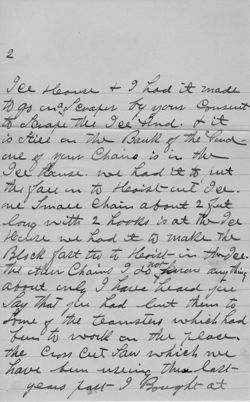 2
Ice House & I had it made
to go on a Scraper by your Consent
to Scrape the Ice Pond & it
is still on the Bank of the Pond
one of your Chains is in the
Ice House we had it to put
the fall on to Hoist out Ice
one Small Chain about 2 feet
long with 2 hooks is at the Ice
House we had it to make the
Block fast to to Hoist in the Ice.
the other Chains I do not know anything
about only I have heard you
Say that you had lent them to
Some of the teamsters which had
been to work on the place
the Cross Cut Saw which we
have been useing this last
years past I Bought at